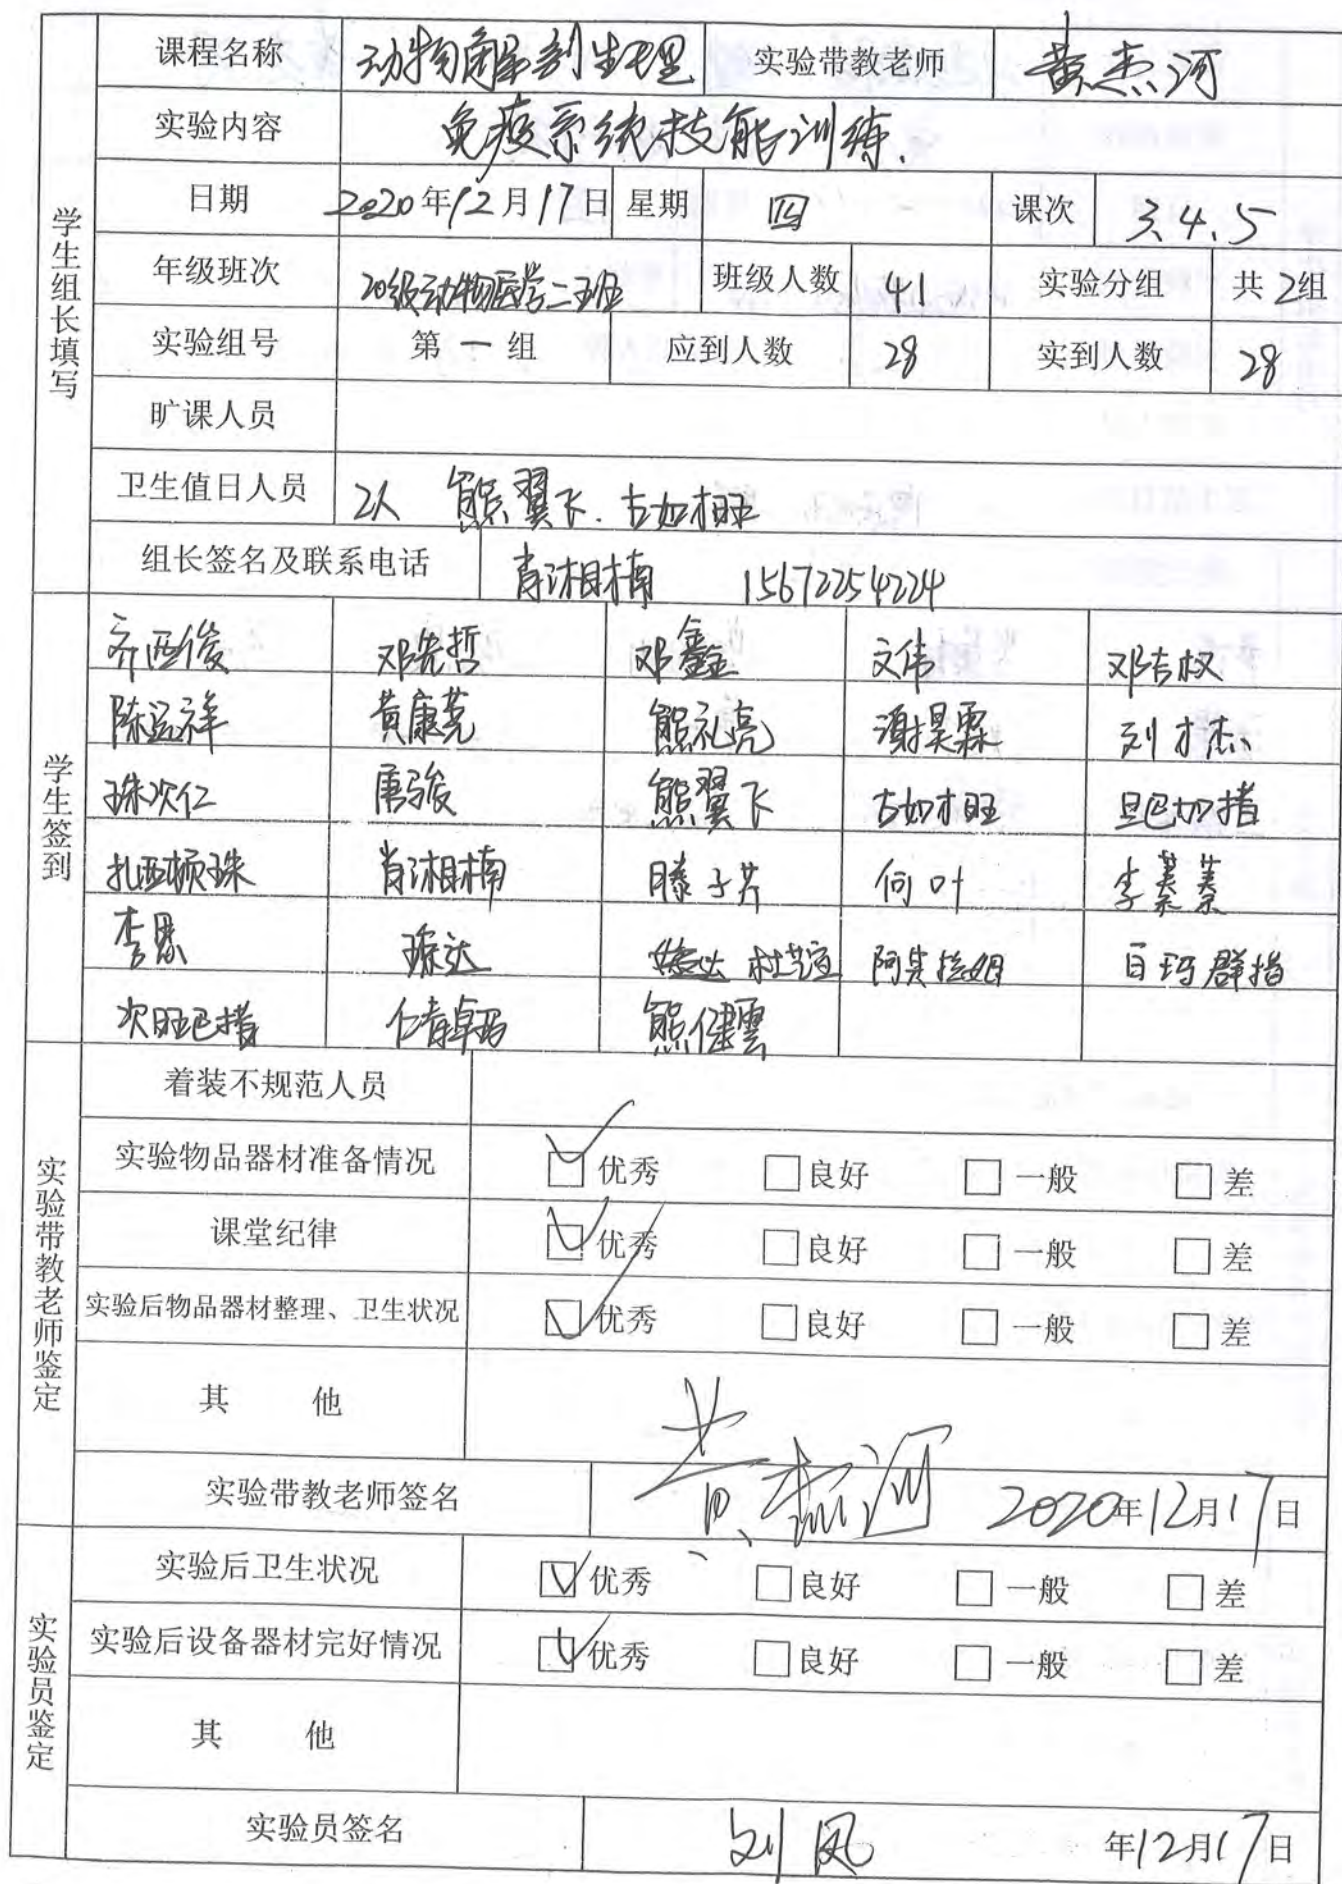 课程名称 动物解剖生理 实验带教老师 黄杰河
实验内容 免疫系统技能训练.
日期 2020年12月17日 星期 四 课次 3.4.5
年级班次 20级动物医学二班 班级人数 41 实验分组 共2组
实验组号 第一组 应到人数 28 实到人数 28
旷课人员
卫生值日人员 2人 熊翼飞.古如旺
组长签名及联系电话 肖湘楠 15672254224
学生组长填写
齐西俊 邓先哲 邓鑫 文伟 邓吉权
陈运祥 黄康尧 熊礼亮 谢昊霖 刘才杰
珠次仁 唐骏 熊翼飞 古如旺 旦巴加措
扎西顿珠 肖湘楠 滕子芥 何叶 李蓁蓁
李思 琼达 杜芸萱 阿旦拉姆 白玛群措
次旺巴措 仁青卓玛 熊健雲
学生签到
着装不规范人员
实验物品器材准备情况 优秀 良好 一般 差
课堂纪律 优秀 良好 一般 差
实验后物品器材整理、卫生状况 优秀 良好 一般 差
其 他
实验带教老师签名 黄杰河 2020年12月17日
实验带教老师鉴定
实验后卫生状况 优秀 良好 一般 差
实验后设备器材完好情况 优秀 良好 一般 差
其 他
实验员签名 刘凤 年12月17日
实验员鉴定